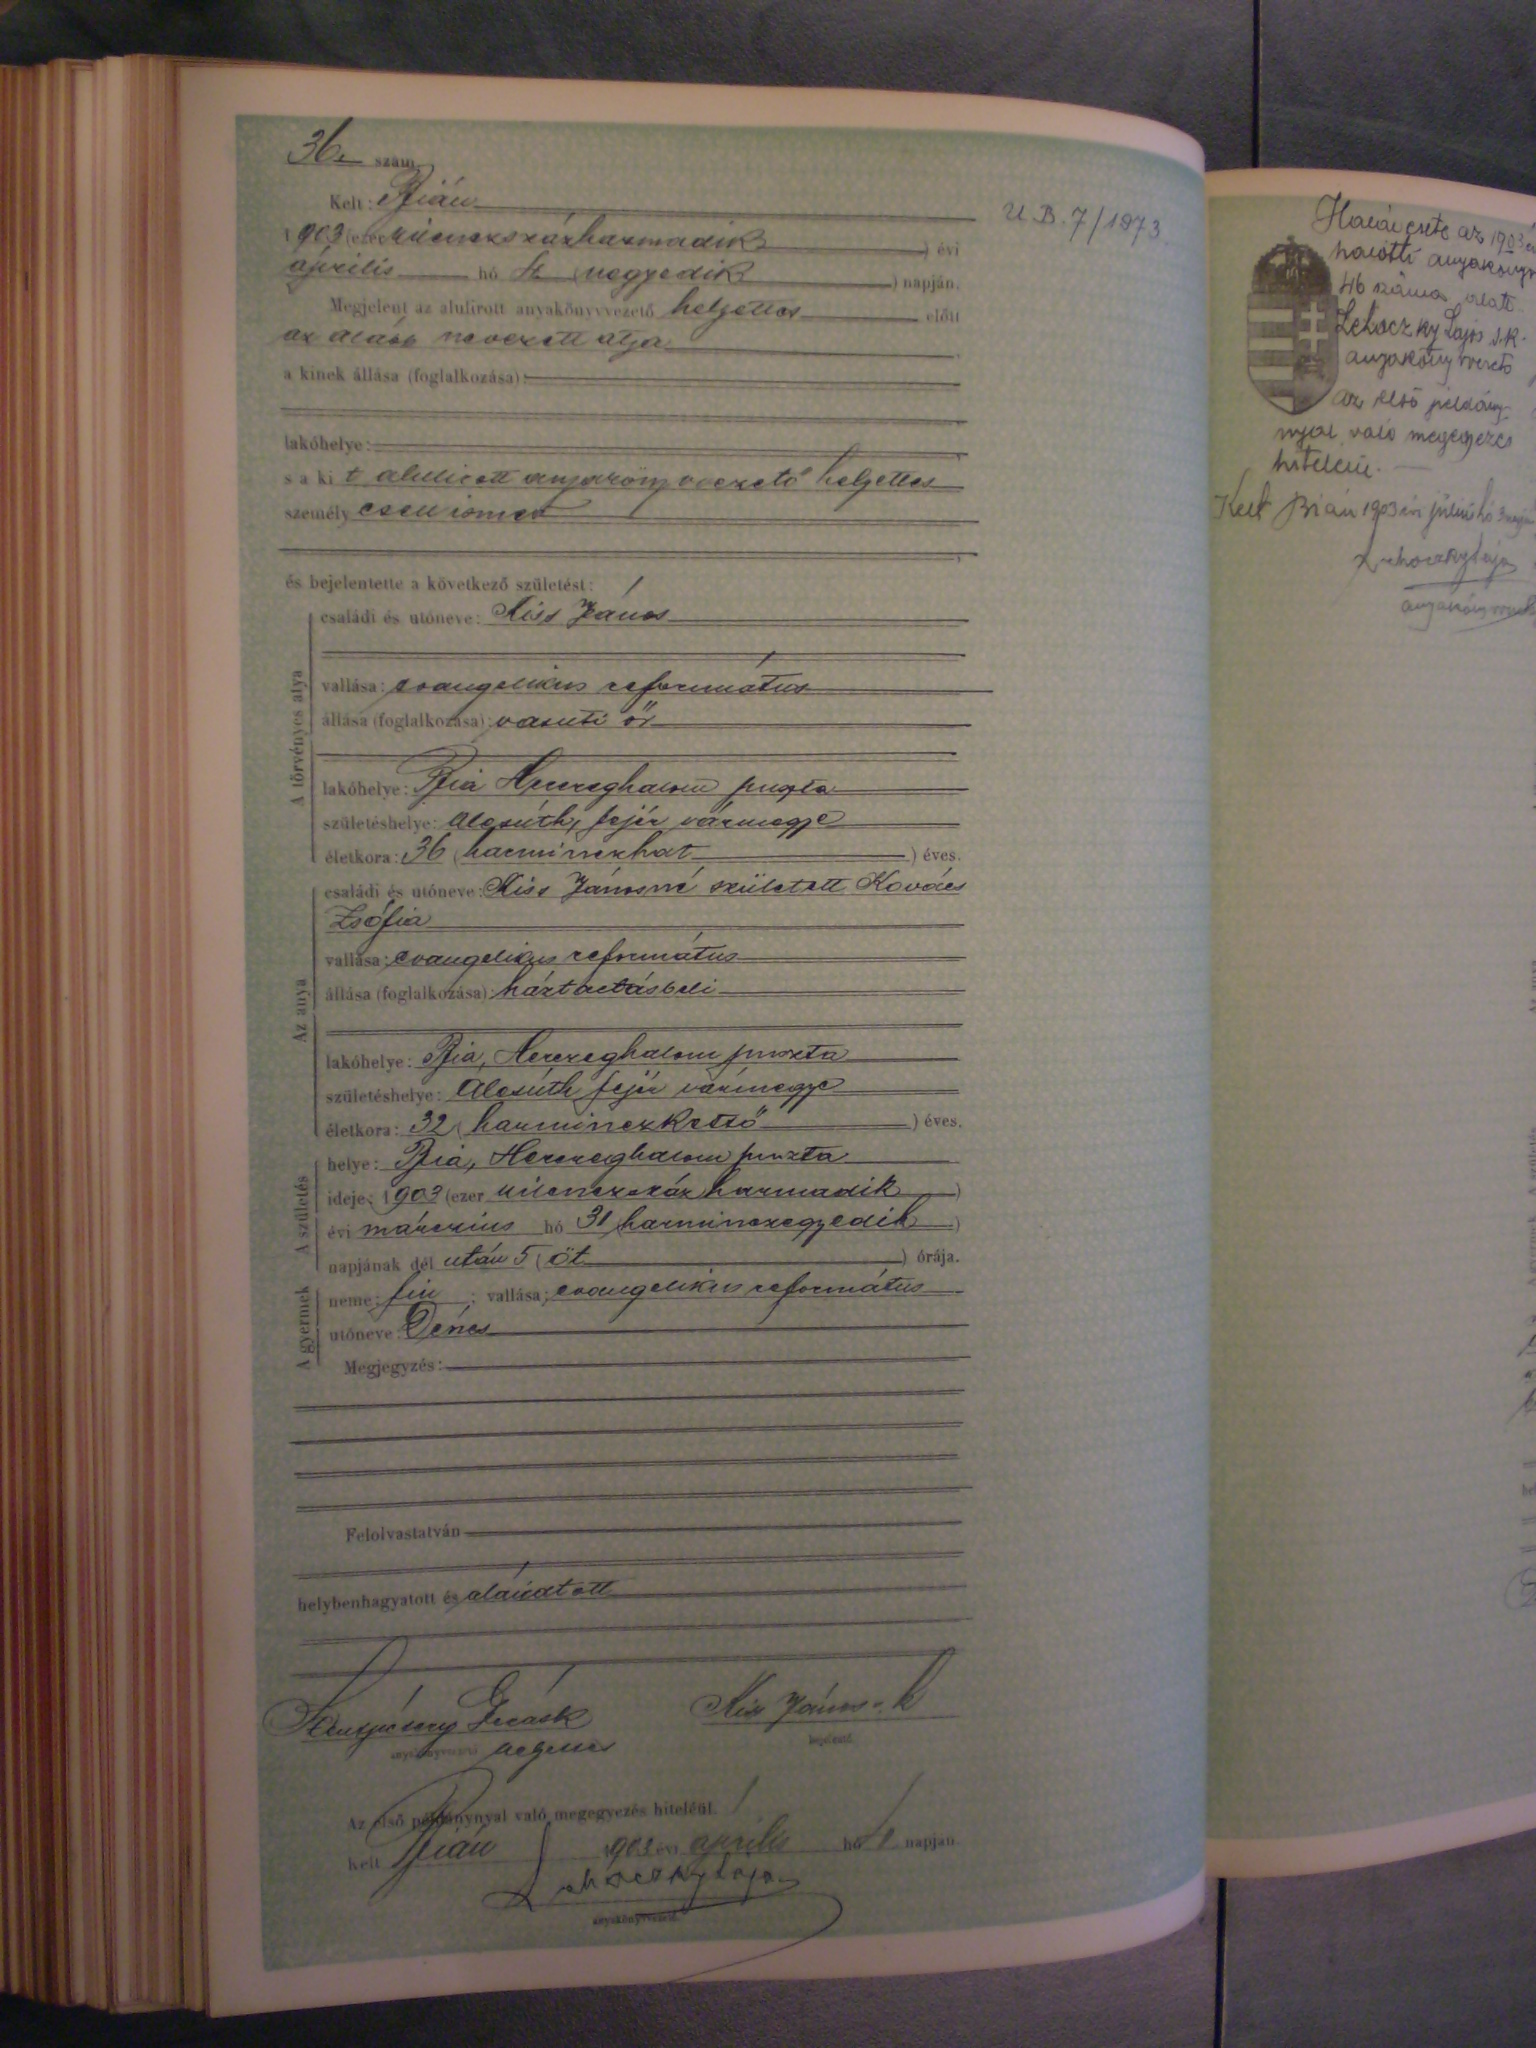 36. szám.
Kelt: Bián
1903 (ezerkilenczszázharmadik) évi
április hó 4 (negyedik) napján.
Megjelent az alulirott anyakönyvvezető helyettes előtt
az alább nevezett atja
a kinek állása (foglalkozása):
lakóhelye:
s a ki t alulirott anyakönyvvezető helyettes
személyesen ismer
és bejelentette a következő születést:
A törvényes atya
családi és utóneve: Kiss János
vallása: evangelikus református
állása (foglalkozása): vasuti őr
lakóhelye: Bia Herczeghalom puszta
születéshelye: Alcsúth, fejér vármegye
életkora: 36 (harminczhat) éves.
Az anya
családi és utóneve: Kiss Jánosné született Kovács
Zsófia
vallása: evangelikus református
állása (foglalkozása): háztartásbeli
lakóhelye: Bia, Herczeghalom puszta
születéshelye: Alcsúth fejér vármegye
életkora: 32 (harminczkettő) éves.
A születés
helye: Bia, Herczeghalom puszta
ideje: 1903 (ezer kilenczszáz harmadik)
évi márczius hó 31 (harminczegyedik)
napjának dél után 5 (öt) órája.
A gyermek
neme: fiu; vallása: evangelikus református
utóneve: Dénes
Megjegyzés:
Felolvastatván
helybenhagyatott és aláiratott
anyakönyvvezető helyettes
Kiss János k
bejelentő.
Az első példánynyal való megegyezés hiteléül.
Kelt Bián 1903 évi április hó 4 napján.
Lehoczky Lajos
anyakönyvvezető.
U. B. 7/1973.
Haláleste az 1903 évi
halotti anyakönyv
46 száma alatt.
Lehoczky Lajos s.k.
anyakönyvvezető
Az első példány-
nyal való megegyezés
hiteléül.
Kelt Bián 1903 évi július hó 3 napján
Lehoczky Lajos
anyakönyvvezető